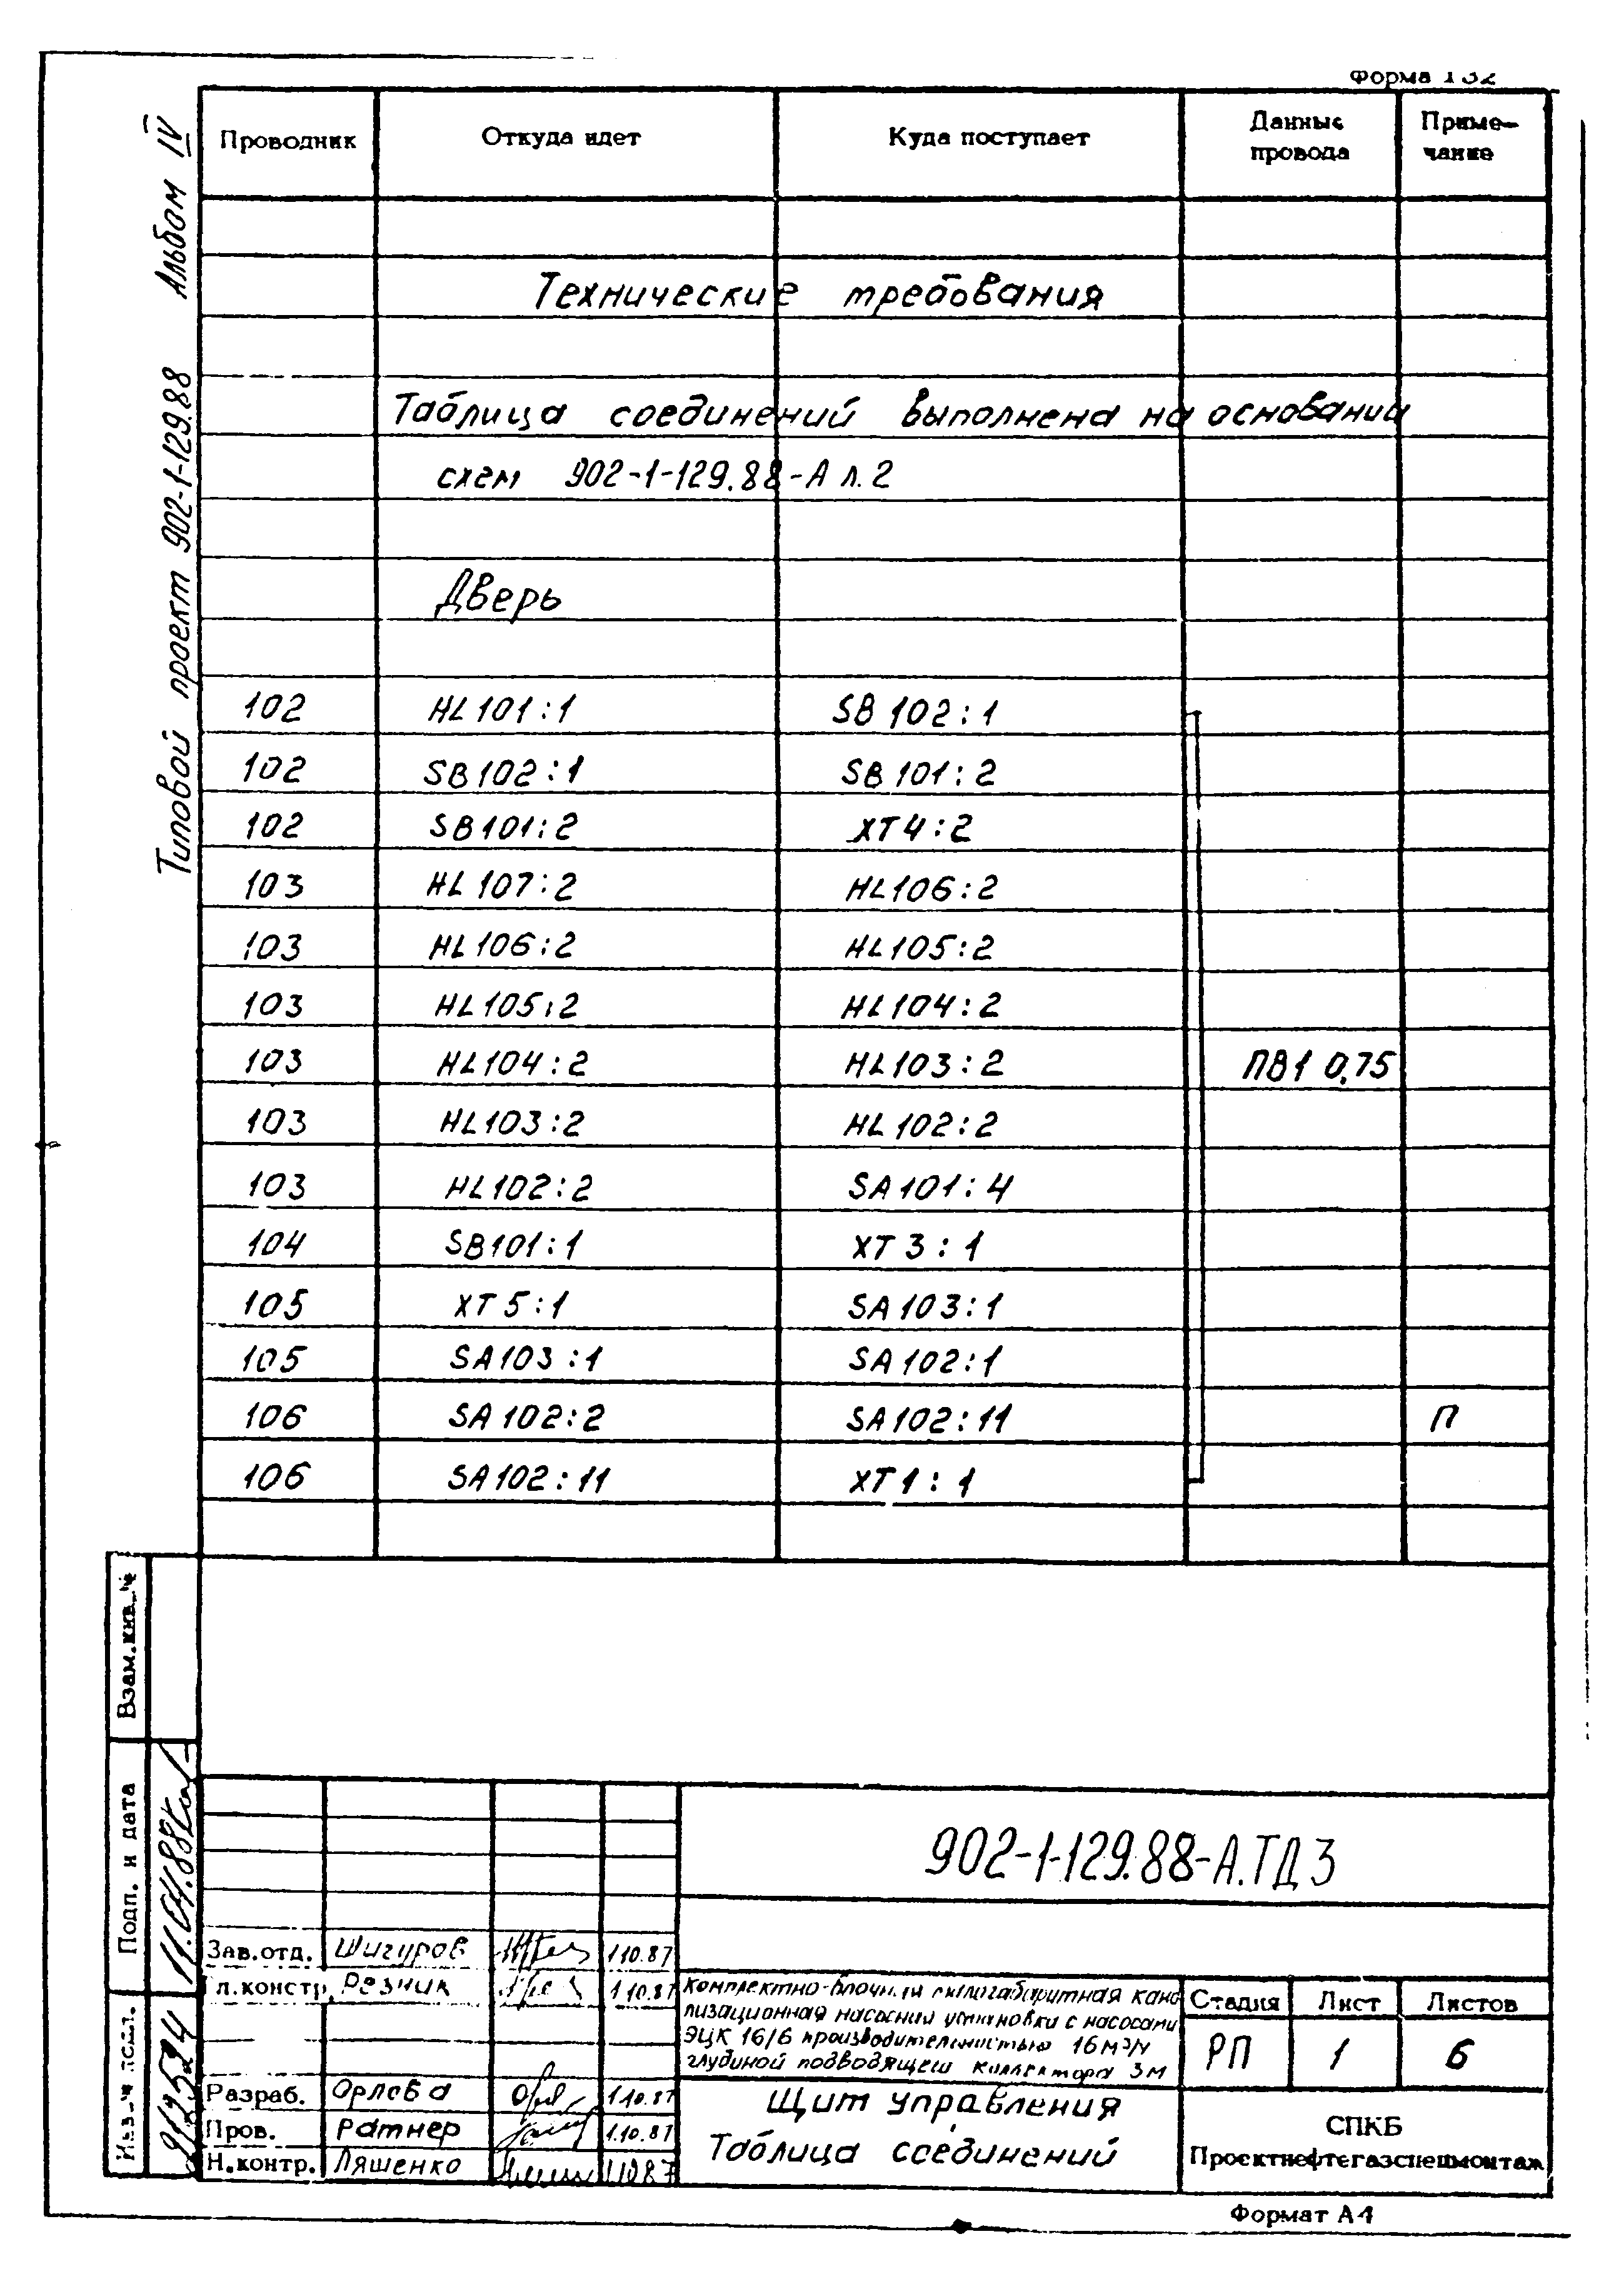 Форма 132
Типовой проект 902-1-129.88 Альбом IV
Проводник Откуда идет Куда поступает Данные провода Приме-чание
Технические требования
Таблица соединений выполнена на основании
схем 902-1-129.88-А л.2
Дверь
102 HL101:1 SB102:1
102 SB102:1 SB101:2
102 SB101:2 XT4:2
103 HL107:2 HL106:2
103 HL106:2 HL105:2
103 HL105:2 HL104:2
103 HL104:2 HL103:2 ПВ1 0,75
103 HL103:2 HL102:2
103 HL102:2 SA101:4
104 SB101:1 XT3:1
105 XT5:1 SA103:1
105 SA103:1 SA102:1
106 SA102:2 SA102:11 П
106 SA102:11 XT1:1
Взам.инв.№
Подп. и дата 11.04.88
Инв.№ подл.
902-1-129.88-А.ТД3
Зав.отд. Шигуров 1.10.87
Гл.констр. Резник 1.10.87
Разраб. Орлова 1.10.87
Пров. Ратнер 1.10.87
Н.контр. Ляшенко 1.10.87
Комплектно-блочная малогабаритная кана
лизационная насосная установка с насосами
ЭЦК 16/6 производительностью 16 м³/ч
глубиной подводящего коллектора 3м
Стадия Лист Листов
РП 1 6
Щит управления
Таблица соединений
СПКБ
Проектнефтегазспецмонтаж
Формат А4